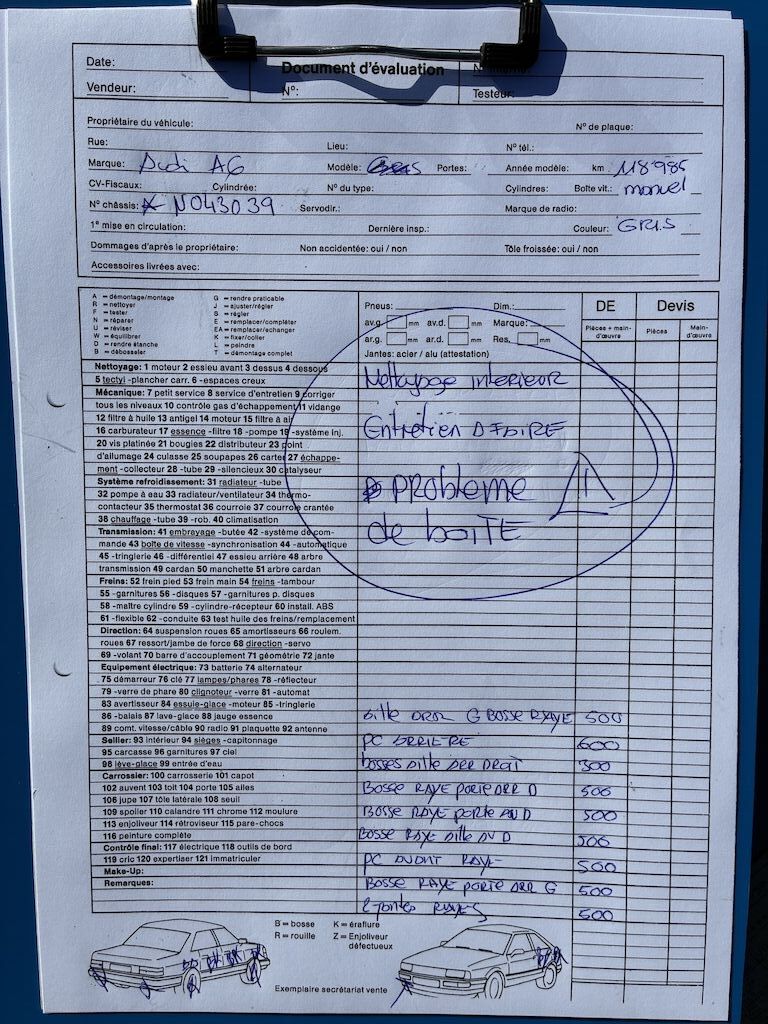 Date:
Document d'évaluation
Vendeur:
N°:
Testeur:
Propriétaire du véhicule:
N° de plaque:
Rue:
Lieu:
N° tél.:
Marque: Audi A6
Modèle:
Portes:
Année modèle:
km 118'985
CV-Fiscaux:
Cylindrée:
N° du type:
Cylindres:
Boîte vit.: manuel
N° châssis: N043039
Servodir.:
Marque de radio:
1e mise en circulation:
Dernière insp.:
Couleur: GRIS
Dommages d'après le propriétaire:
Non accidentée: oui / non
Tôle froissée: oui / non
Accessoires livrées avec:
A = démontage/montage
R = nettoyer
F = tester
N = réparer
U = réviser
W = équilibrer
D = rendre étanche
B = débosseler
G = rendre praticable
J = ajuster/régler
S = régler
E = remplacer/compléter
EA = remplacer/echanger
K = fixer/coller
L = peindre
T = démontage complet
Pneus:
Dim.:
av.g. mm av.d. mm Marque:
ar.g. mm ar.d. mm Res. mm
Jantes: acier / alu (attestation)
DE
Pièces + main-d'œuvre
Devis
Pièces
Main-d'œuvre
Nettoyage: 1 moteur 2 essieu avant 3 dessus 4 dessous
5 tectyl -plancher carr. 6 -espaces creux
Mécanique: 7 petit service 8 service d'entretien 9 corriger
tous les niveaux 10 contrôle gas d'échappement 11 vidange
12 filtre à huile 13 antigel 14 moteur 15 filtre à air
16 carburateur 17 essence -filtre 18 -pompe 19 -système inj.
20 vis platinée 21 bougies 22 distributeur 23 point
d'allumage 24 culasse 25 soupapes 26 carter 27 échappe-
ment -collecteur 28 -tube 29 -silencieux 30 catalyseur
Système refroidissement: 31 radiateur -tube
32 pompe à eau 33 radiateur/ventilateur 34 thermo-
contacteur 35 thermostat 36 courroie 37 courroie crantée
38 chauffage -tube 39 -rob. 40 climatisation
Transmission: 41 embrayage -butée 42 -système de com-
mande 43 boîte de vitesse -synchronisation 44 -automatique
45 -tringlerie 46 -différentiel 47 essieu arrière 48 arbre
transmission 49 cardan 50 manchette 51 arbre cardan
Freins: 52 frein pied 53 frein main 54 freins -tambour
55 -garnitures 56 -disques 57 -garnitures p. disques
58 -maître cylindre 59 -cylindre-récepteur 60 install. ABS
61 -flexible 62 -conduite 63 test huile des freins/remplacement
Direction: 64 suspension roues 65 amortisseurs 66 roulem.
roues 67 ressort/jambe de force 68 direction -servo
69 -volant 70 barre d'accouplement 71 géométrie 72 jante
Equipement électrique: 73 batterie 74 alternateur
75 démarreur 76 clé 77 lampes/phares 78 -réflecteur
79 -verre de phare 80 clignoteur -verre 81 -automat
83 avertisseur 84 essuie-glace -moteur 85 -tringlerie
86 -balais 87 lave-glace 88 jauge essence
89 comt. vitesse/câble 90 radio 91 plaquette 92 antenne
Sellier: 93 intérieur 94 sièges -capitonnage
95 carcasse 96 garnitures 97 ciel
98 lève-glace 99 entrée d'eau
Carrossier: 100 carrosserie 101 capot
102 auvent 103 toit 104 porte 105 ailes
106 jupe 107 tôle latérale 108 seuil
109 spoiler 110 calandre 111 chrome 112 moulure
113 enjoliveur 114 rétroviseur 115 pare-chocs
116 peinture complète
Contrôle final: 117 électrique 118 outils de bord
119 cric 120 expertiser 121 immatriculer
Make-Up:
Remarques:
Nettoyage interieur
Entretien A FAIRE
PROBLEME
de boiTE
Aille ARR G BOSSE RAYE 500
PC ARRIERE 600
bosses Aille ARR DROIT 300
BOSSE RAYE PORTE ARR D 500
BOSSE RAYE PORTE AV D 500
BOSSE RAYE Aille AV D 500
PC AVANT RAYE 500
BOSSE RAYE PORTE ARR G 500
RAYES 500
B = bosse K = éraflure
R = rouille Z = Enjoliveur
défectueux
Exemplaire secrétariat vente